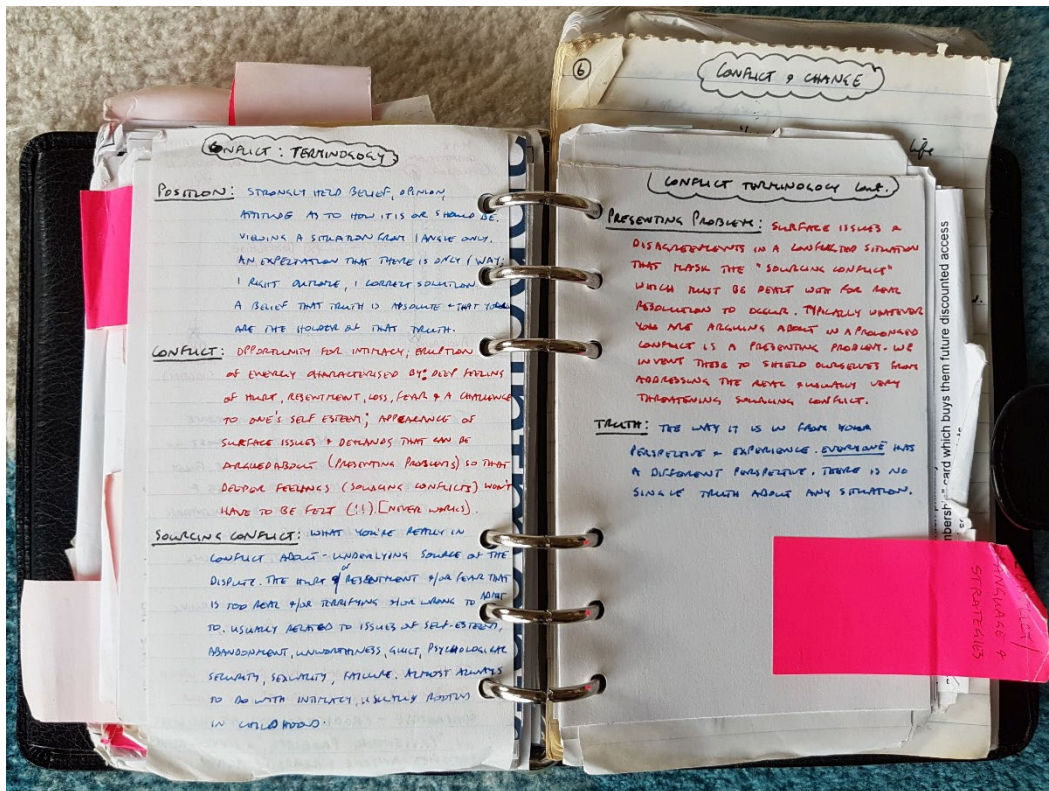 CONFLICT: TERMINOLOGY
POSITION: STRONGLY HELD BELIEF, OPINION,
ATTITUDE AS TO HOW IT IS OR SHOULD BE.
VIEWING A SITUATION FROM 1 ANGLE ONLY.
AN EXPECTATION THAT THERE IS ONLY 1 WAY;
1 RIGHT OUTCOME, 1 CORRECT SOLUTION.
A BELIEF THAT TRUTH IS ABSOLUTE & THAT YOU
ARE THE HOLDER OF THAT TRUTH.
CONFLICT: OPPORTUNITY FOR INTIMACY; ERUPTION
OF ENERGY CHARACTERISED BY: DEEP FEELINGS
OF HURT, RESENTMENT, LOSS, FEAR & A CHALLENGE
TO ONE'S SELF ESTEEM; APPEARANCE OF
SURFACE ISSUES & DEMANDS THAT CAN BE
ARGUED ABOUT (PRESENTING PROBLEMS) SO THAT
DEEPER FEELINGS (SOURCING CONFLICTS) WON'T
HAVE TO BE FELT (!!). [NEVER WORKS].
SOURCING CONFLICT: WHAT YOU'RE REALLY IN
CONFLICT ABOUT - UNDERLYING SOURCE OF THE
DISPUTE. THE HURT &/or RESENTMENT &/OR FEAR THAT
IS TOO REAL &/OR TERRIFYING &/OR WRONG TO ADMIT
TO. USUALLY RELATED TO ISSUES OF SELF-ESTEEM,
ABANDONMENT, UNWORTHINESS, GUILT, PSYCHOLOGICAL
SECURITY, SEXUALITY, FAILURE. ALMOST ALWAYS
TO DO WITH INTIMACY, USUALLY ROOTED
IN CHILDHOOD.
6
CONFLICT & CHANGE
Life
CONFLICT TERMINOLOGY Cont.
PRESENTING PROBLEM: SURFACE ISSUES &
DISAGREEMENTS IN A CONFLICTED SITUATION
THAT MASK THE "SOURCING CONFLICT"
WHICH MUST BE DEALT WITH FOR REAL
RESOLUTION TO OCCUR. TYPICALLY WHATEVER
YOU ARE ARGUING ABOUT IN A PROLONGED
CONFLICT IS A PRESENTING PROBLEM. WE
INVENT THESE TO SHIELD OURSELVES FROM
ADDRESSING THE REAL & USUALLY VERY
THREATENING SOURCING CONFLICT.
TRUTH: THE WAY IT IS IN FROM YOUR
PERSPECTIVE & EXPERIENCE. EVERYONE HAS
A DIFFERENT PERSPECTIVE. THERE IS NO
'SINGLE' TRUTH ABOUT ANY SITUATION.
card which buys them future discounted access
LANGUAGE &
STRATEGIES